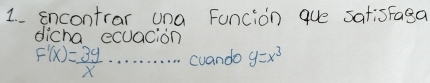 1.- Encontrar una Función que satisfaga
dicha ecuación
F'(x)=3y/x ........... cuando y=x³